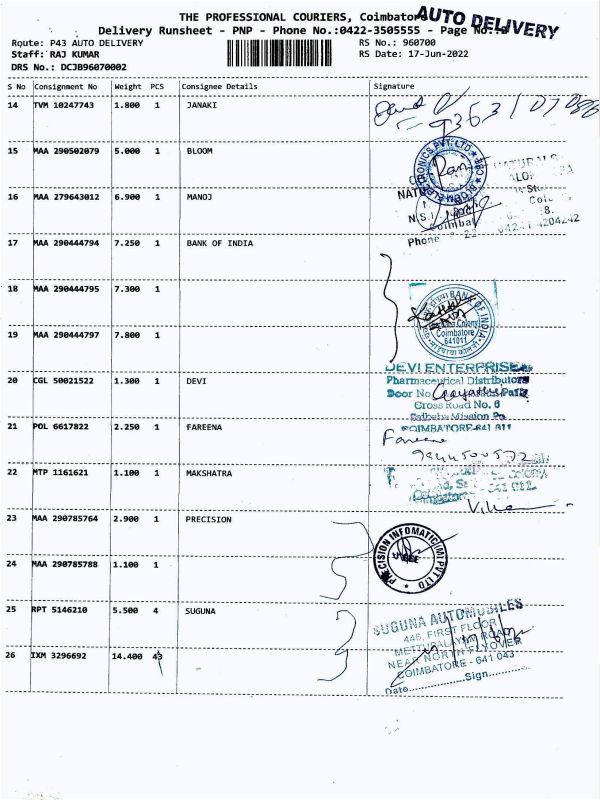 THE PROFESSIONAL COURIERS, Coimbatore
AUTO DELIVERY
Delivery Runsheet - PNP - Phone No.:0422-3505555 - Page No.:
Route: P43 AUTO DELIVERY
RS No.: 960700
Staff: RAJ KUMAR
RS Date: 17-Jun-2022
DRS No.: DCJB96070002
S No Consignment No Weight PCS Consignee Details Signature
14 TVM 10247743 1.800 1 JANAKI
15 MAA 290502079 5.000 1 BLOOM
16 MAA 279643012 6.900 1 MANOJ
Phone
17 MAA 290444794 7.250 1 BANK OF INDIA
18 MAA 290444795 7.300 1
BANK OF INDIA
Coimbatore
641011
19 MAA 290444797 7.800 1
DEVI ENTERPRISE
20 CGL 50021522 1.300 1 DEVI
Pharmaceutical Distributors
Door No
Cross Road No. 6
Saibaba Mission
COIMBATORE-641 011
21 POL 6617822 2.250 1 FAREENA
Fareena
9844500572
22 MTP 1161621 1.100 1 MAKSHATRA
23 MAA 290785764 2.900 1 PRECISION
PRECISION INFOMATIC(M) PVT LTD
24 MAA 290785788 1.100 1
25 RPT 5146210 5.500 4 SUGUNA
SUGUNA AUTOMOBILES
446, FIRST FLOOR
METTUPALAYAM ROAD
NEAR NORTH FLYOVER
COIMBATORE - 641 043
26 IXM 3296692 14.400
Date Sign